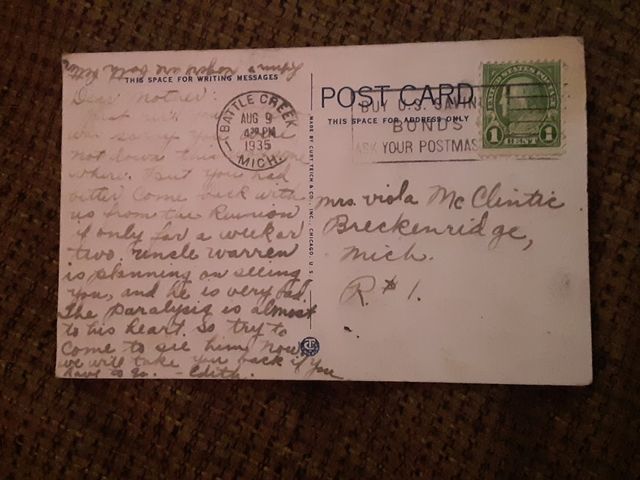 are both better
THIS SPACE FOR WRITING MESSAGES
Dear Mother:
was sorry you were
not down this
where. But you had
better come back with
us from the Reunion
if only for a week or
two. Uncle Warren
is planning on seeing
you, and he is very bad.
The Paralysis is almost
to his heart. So try to
come to see him now.
we will take you back if you
have to go. - Edith.
BATTLE CREEK
AUG 9
4 PM
1935
MICH.
MADE BY CURT TEICH & CO., INC., CHICAGO, U.S.
POST CARD
THIS SPACE FOR ADDRESS ONLY
BUY U.S. SAVIN
BONDS
ASK YOUR POSTMAS
UNITED STATES POSTAGE
1 CENT 1
Mrs. Viola McClintic
Breckenridge,
Mich.
R. #1.